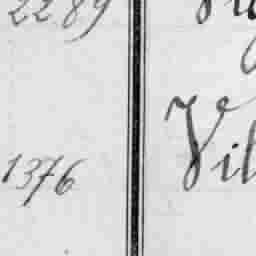 2289
1376 Vil